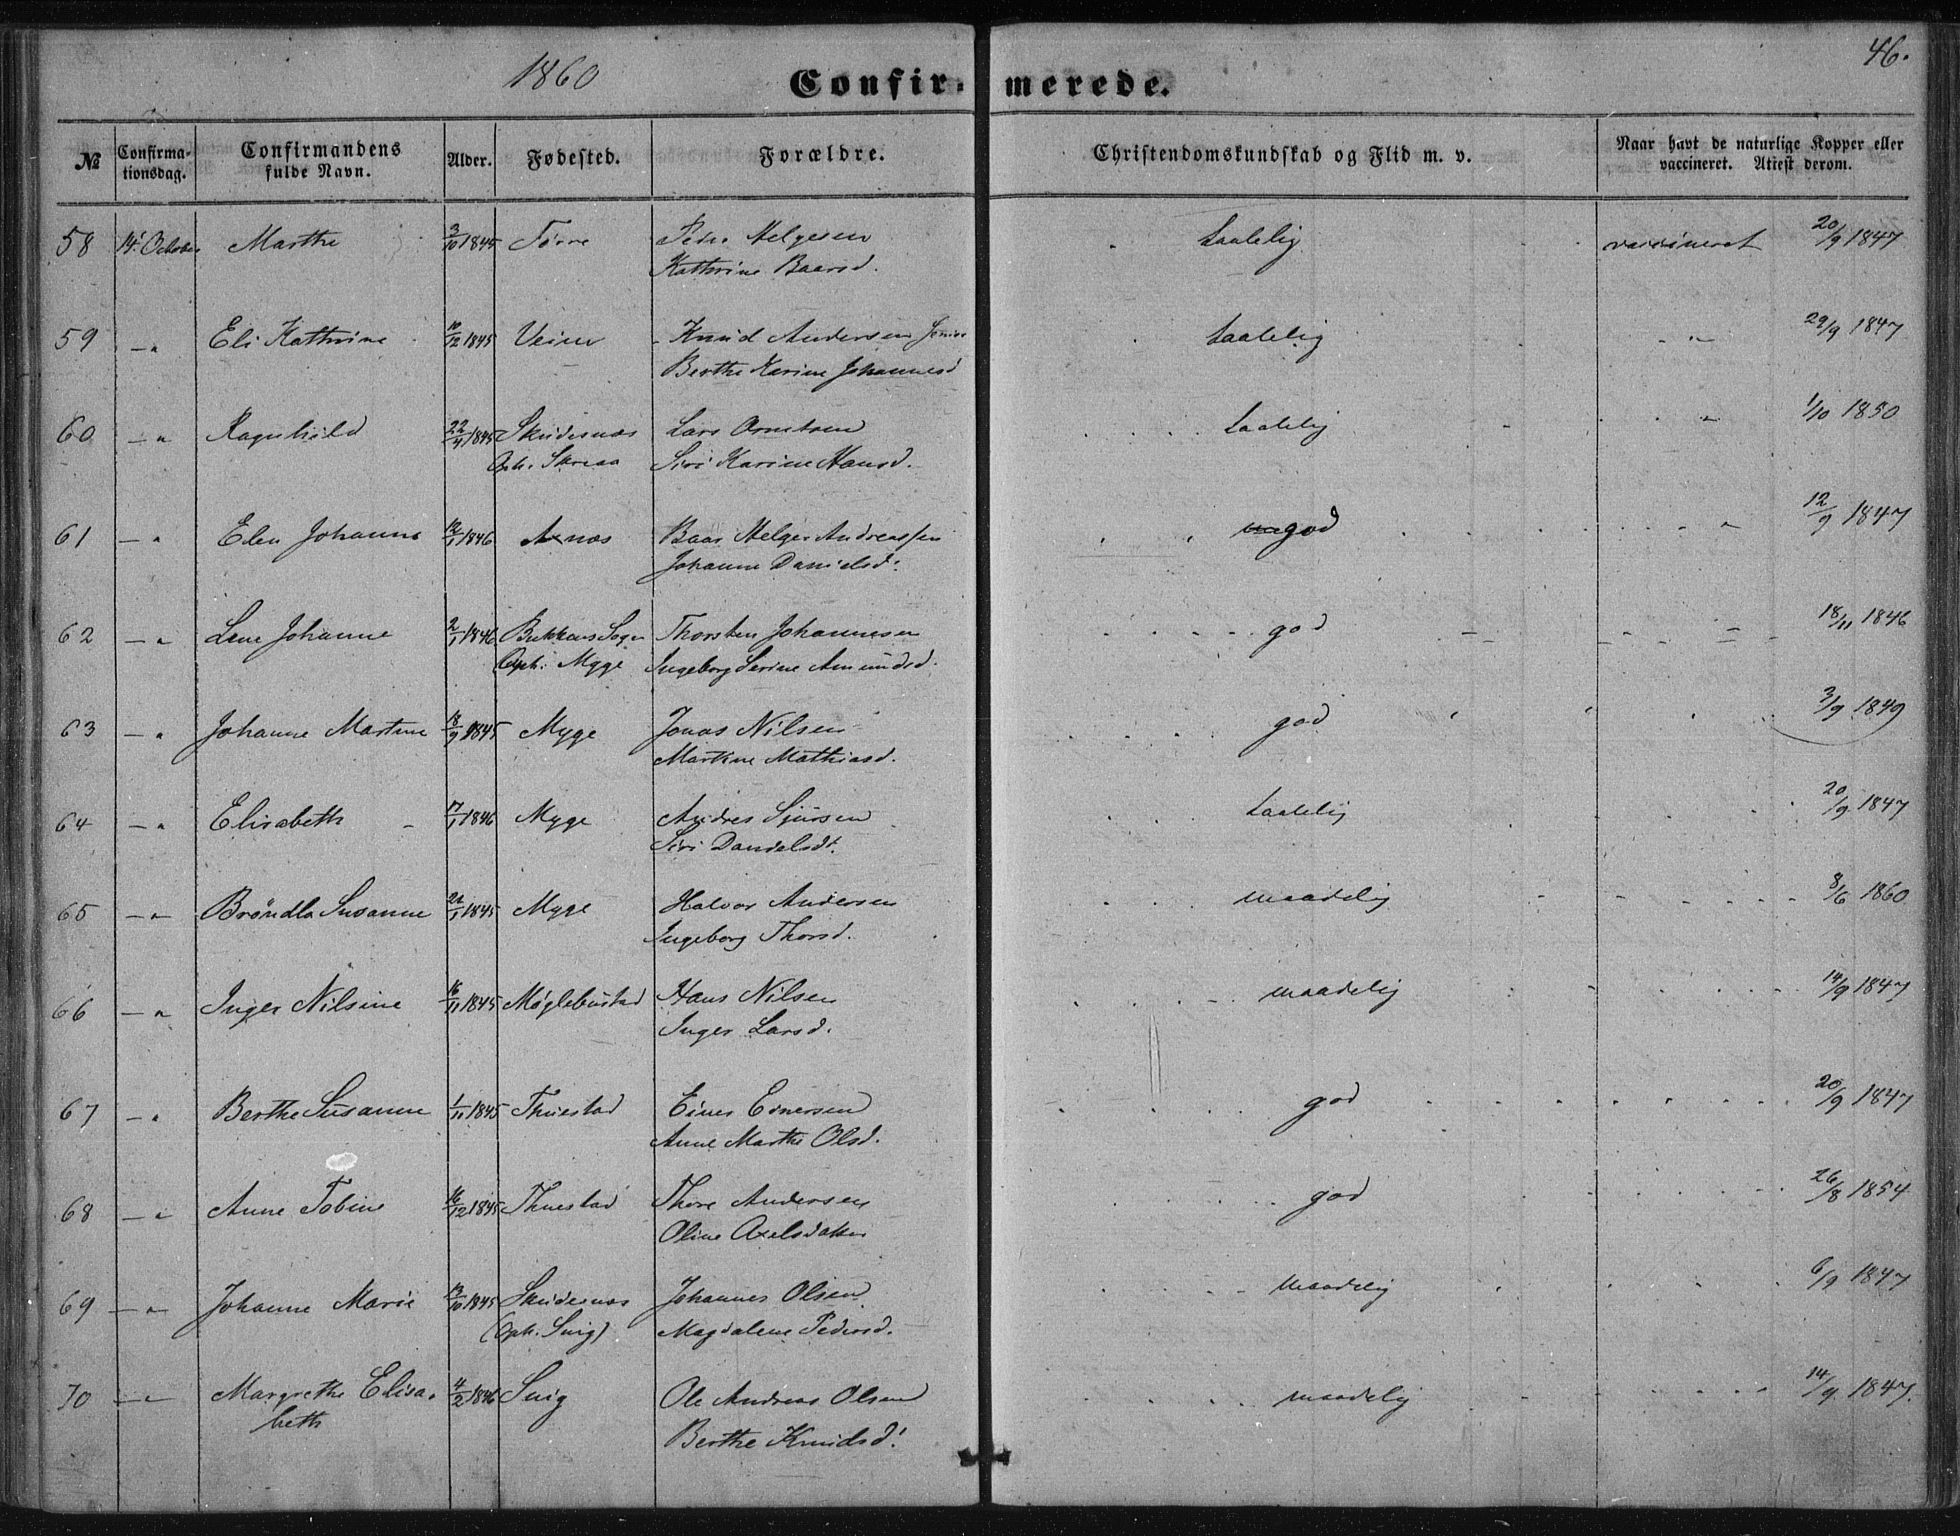 1860
46.
Confirmerede.
№ Confirmationsdag. Confirmandens fulde Navn. Alder. Fødested. Forældre. Christendomskundskab og Flid m. v. Naar havt de naturlige Kopper eller vaccineret. Attest derom.
58 14. October Marthe 3/10 1845 Tørre Peder Helgesen taalelig vaccineret 20/9 1847
Kathrine Baarsd.
59 —„ Eli Kathrine 10/12 1845 Knud Andersen taalelig „ 29/9 1847
Berthe Karine Johannesd
60 —„ Ragnhild 22/4 1845 Skudesnæs Lars taalelig „ 1/10 1850
Oph. Siri Karine Hansd.
61 —„ Elen Johanna 12/1 1846 Baar Helge Andreassen god „ 12/9 1847
Johanne Danielsd.
62 —„ Lene Johanne 2/1 1846 Bukkens Sogn Thorsten Johannesen god 18/11 1846
Oph: Myge Ingeborg Serine Amundsd.
63 —„ Johanne Martine 18/9 1845 Myge Jonas Nilsen god 3/9 1849
Martine Mathiasd.
64 —„ Elisabeth 17/1 1846 Myge Andres Sjursen taalelig 20/9 1847
Siri Danielsdt.
65 —„ Brøndla Susanne 1845 Myge Halvor Andersen maadelig 8/6 1860
Ingeborg Thorsd.
66 —„ Inger Nilsine 16/11 1845 Møglebustad Hans Nilsen maadelig 14/9 1847
Inger Larsd.
67 —„ Berthe Susanne 1/11 1845 Thuestad Einer Einersen god 20/9 1847
Anne Marthe Olsd.
68 —„ Anne Tobine 16/12 1845 Thuestad Thore Andersen god 26/8 1854
Oline Axelsdatter
69 —„ Johanne Marie 1845 Skudesnæs Johannes Olsen maadelig 6/9 1847
(Oph. Snig) Magdalene Pedersd.
70 —„ Margrethe Elisa- 4/2 1846 Snig Ole Andreas Olsen maadelig 14/9 1847.
beth Berthe Knudsd.